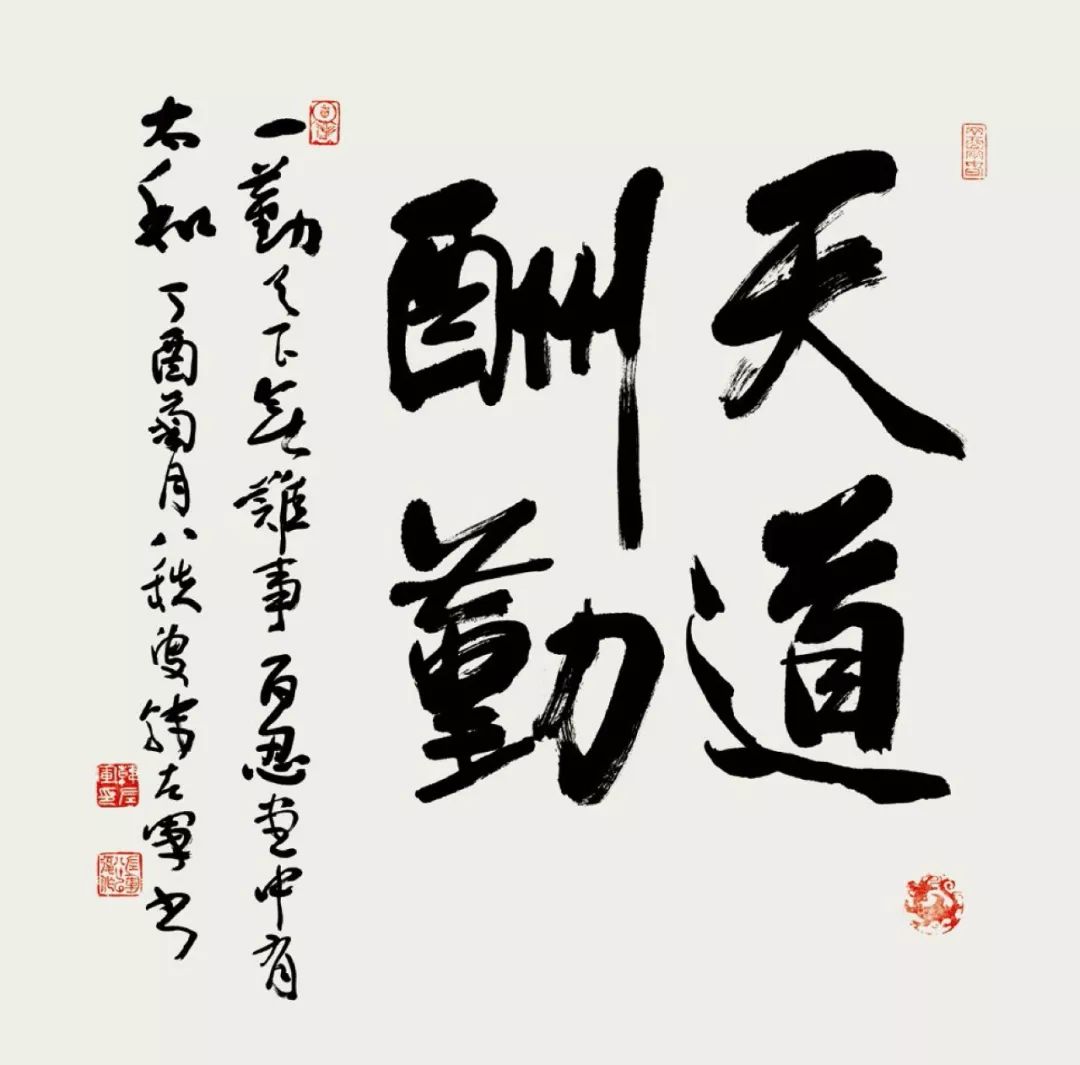 天道
酬勤
一勤天下無難事百忍堂中有
太和 丁酉菊月八秩叟韓左軍書